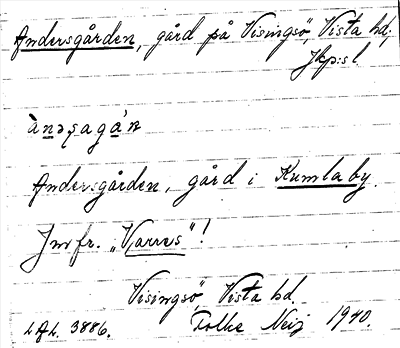 Andersgården, gård på Visingsö, Vista hd,
Jkp:s l.
ànəʂagá'n
Andersgården, gård i Kumlaby.
Jmfr. „Varres"!
Visingsö, Vista hd.
LAL. 3886. Folke Neij 1940.